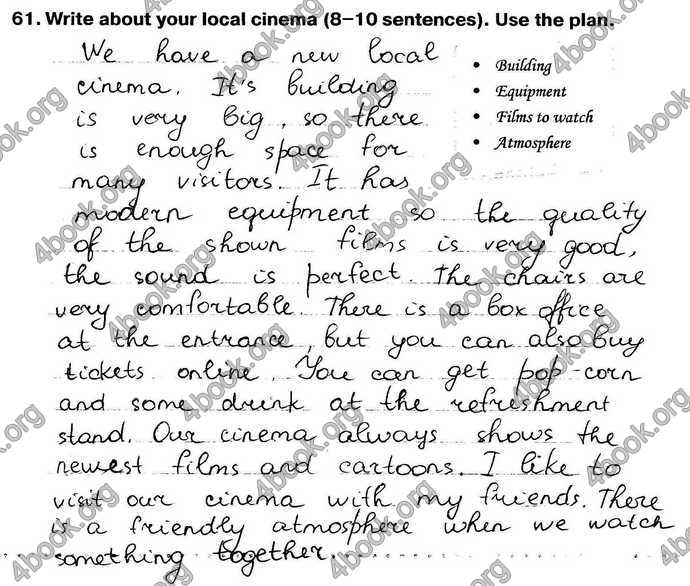 61. Write about your local cinema (8–10 sentences). Use the plan.
We have a new local
cinema. It's building
is very big, so there
is enough space for
many visitors. It has
• Building
• Equipment
• Films to watch
• Atmosphere
modern equipment so the quality
of the shown films is very good,
the sound is perfect. The chairs are
very comfortable. There is a box office
at the entrance, but you can also buy
tickets online. You can get pop-corn
and some drink at the refreshment
stand. Our cinema always shows the
newest films and cartoons. I like to
visit our cinema with my friends. There
is a friendly atmosphere when we watch
something together.
4book.org